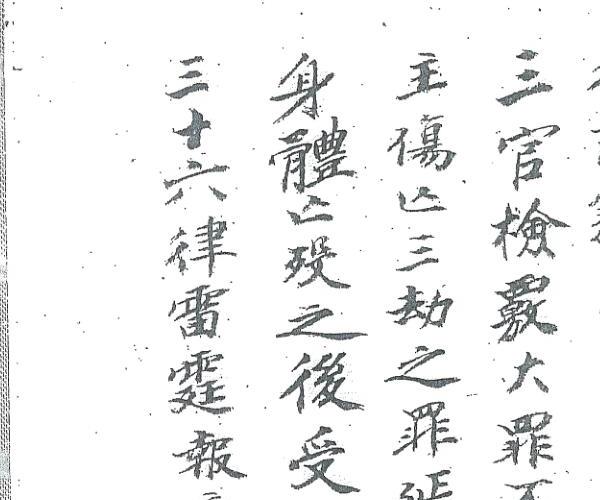 三官檢覈大罪不
主傷亡三劫之罪延
身體亡歿之後受
三十六律雷霆報